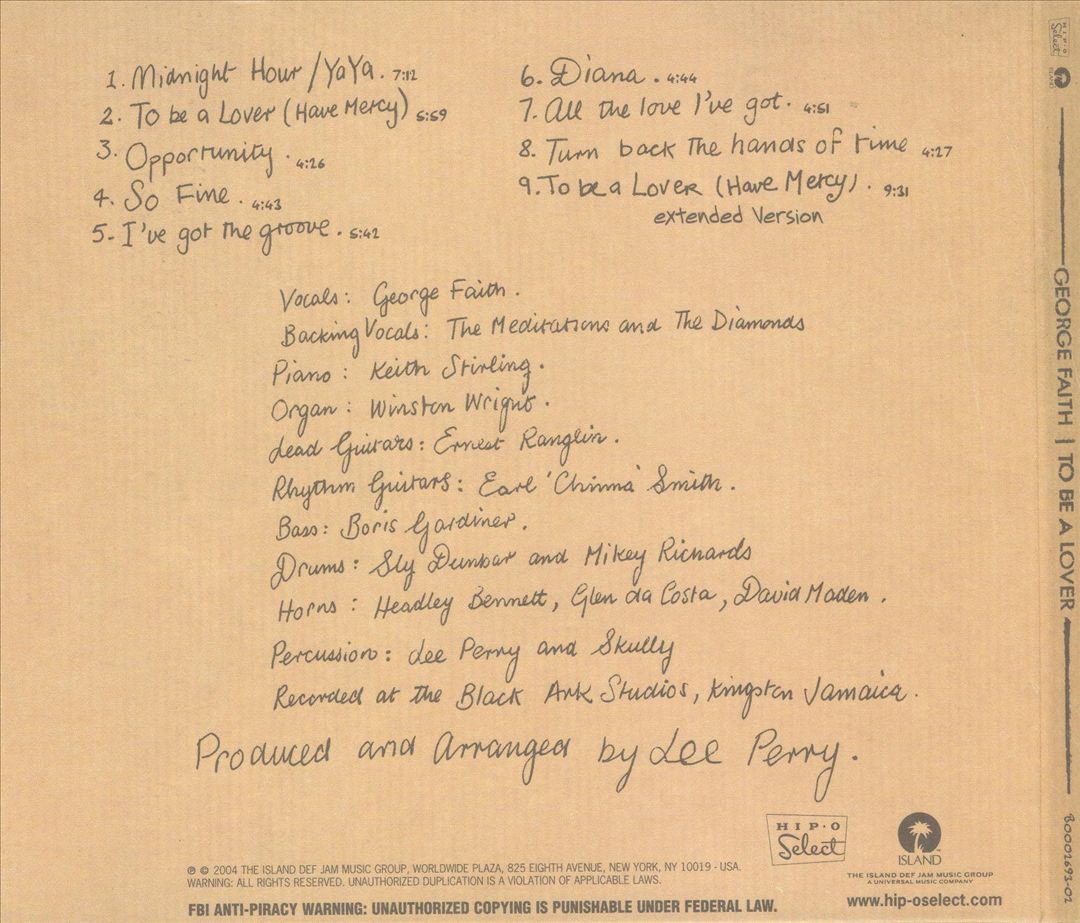 1. Midnight Hour / YaYa. 7:12
2. To be a Lover (Have Mercy) 5:59
3. Opportunity. 4:26
4. So Fine. 4:43
5- I've got the groove. 5:42
6. Diana. 4:44
7. All the love I've got. 4:51
8. Turn back the hands of time 4:27
9. To be a Lover (Have Mercy). 9:31
extended Version
Vocals: George Faith.
Backing Vocals: The Meditations and The Diamonds
Piano: Keith Stirling.
Organ: Winston Wright.
Lead Guitars: Ernest Ranglin.
Rhythm Guitars: Earl 'Chinna' Smith.
Bass: Boris Gardiner.
Drums: Sly Dunbar and Mikey Richards
Horns: Headley Bennett, Glen da Costa, David Maden.
Percussion: Lee Perry and Skully
Recorded at the Black Ark Studios, Kingston Jamaica.
Produced and Arranged by Lee Perry.
HIP-O
Select
ISLAND
℗ © 2004 THE ISLAND DEF JAM MUSIC GROUP, WORLDWIDE PLAZA, 825 EIGHTH AVENUE, NEW YORK, NY 10019 - USA.
WARNING: ALL RIGHTS RESERVED. UNAUTHORIZED DUPLICATION IS A VIOLATION OF APPLICABLE LAWS.
THE ISLAND DEF JAM MUSIC GROUP
A UNIVERSAL MUSIC COMPANY
FBI ANTI-PIRACY WARNING: UNAUTHORIZED COPYING IS PUNISHABLE UNDER FEDERAL LAW.
www.hip-oselect.com
HIP-O
Select
ISLAND
GEORGE FAITH | TO BE A LOVER
B0002693-02